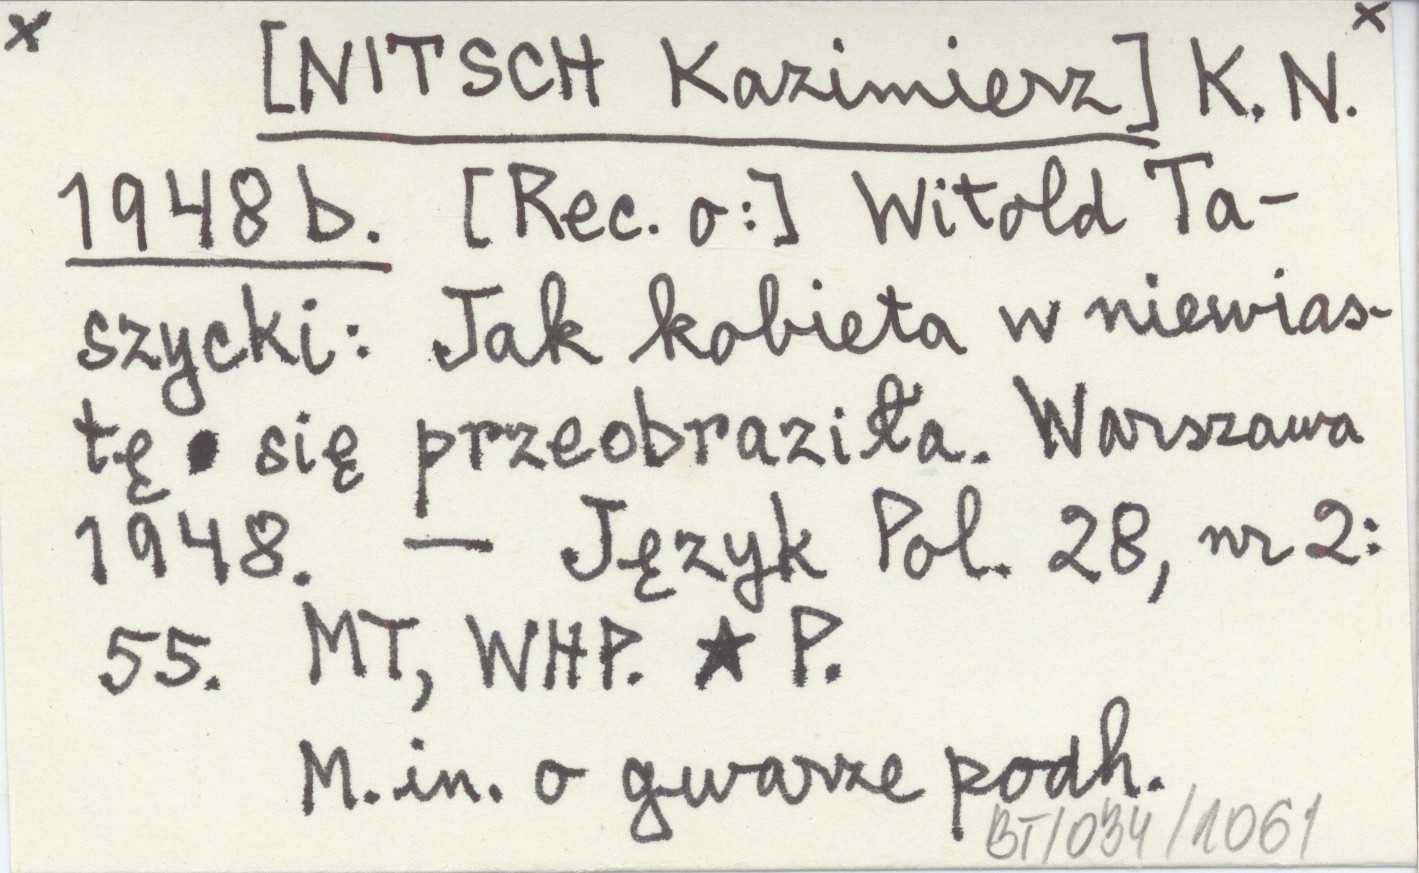 x [NITSCH Kazimierz] K. N. x
1948 b. [Rec. o:] Witold Ta-
szycki: Jak kobieta w niewias-
tę się przeobraziła. Warszawa
1948. — Język Pol. 28, nr 2:
55. MT, WHP. ★ P.
M. in. o gwarze podh.
BT/034/1061